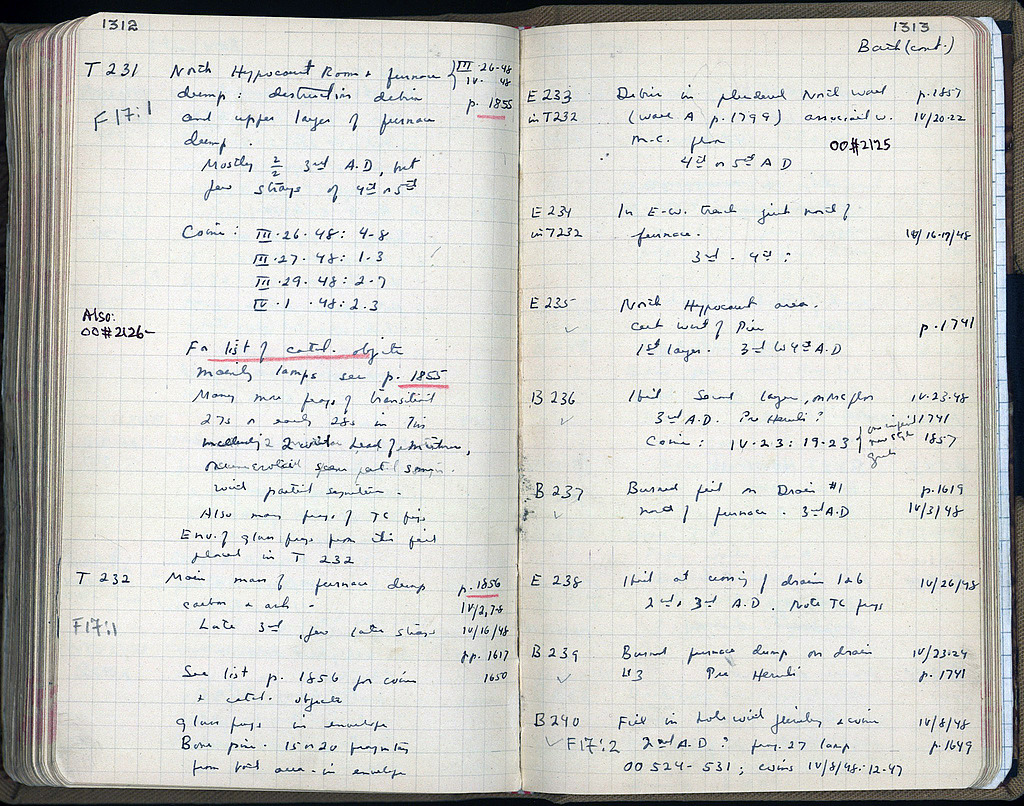 1312
T 231 North Hypocaust Room & furnace III-26-48
IV- 48
dump: destruction debris p. 1855
F17:1 and upper layer of furnace
dump.
Mostly 2/2 3rd A.D, but
few strays of 4th or 5th
Coins: III-26-48: 4-8
III-27-48: 1-3
III-29-48: 2-7
IV-1-48: 2-3
Also:
00#2126-
For list of catal. objects
mainly lamps see p. 1855
Many more frags of transitional
27s or early 28s in
head of
with partial signature.
Also many frags of TC figs
Env. of glass frags from this fill
placed in T 232
T 232 Main mass of furnace dump p. 1856
carbon & ash - IV/2,7-8
F17:1 Late 3rd, few later strays IV/16/48
pp. 1617
See list p. 1856 for coins 1650
& catal. objects
glass frags in envelope
Bone pins. 15 or 20 fragments
from area - in envelope
1313
Bath (cont.)
E 233 Debris in plundered North wall p. 1857
in T232 (wall A p. 1799) associated w. IV/20-22
m.c. floor 00#2125
4th or 5th A D
E 234 In E-W. trench just north of
in T232 furnace. IV/16-19/48
3rd - 4th ?
E 235 North Hypocaust area.
✓ east west of Pier p. 1741
1st layer. 3rd to 4th A.D
B 236 Fill layer, floor IV-23-48
✓ 3rd A.D. Pre Heruli? 1741
Coins: IV-23: 19-23 1857
B 237 Burned fill on Drain #1 p. 1619
✓ north of furnace. 3rd A.D IV/3/48
E 238 Fill at crossing of drain 1&6 IV/26/48
2nd & 3rd A.D. Note TC frags
B 239 Burned furnace dump on drain IV/23-24
✓ #3 Pre Heruli p. 1741
B 240 Fill in hole with & coin IV/8/48
✓ F17:2 2nd A.D? frag. 27 lamp p. 1649
00 524-531; coins IV/8/48: 12-47